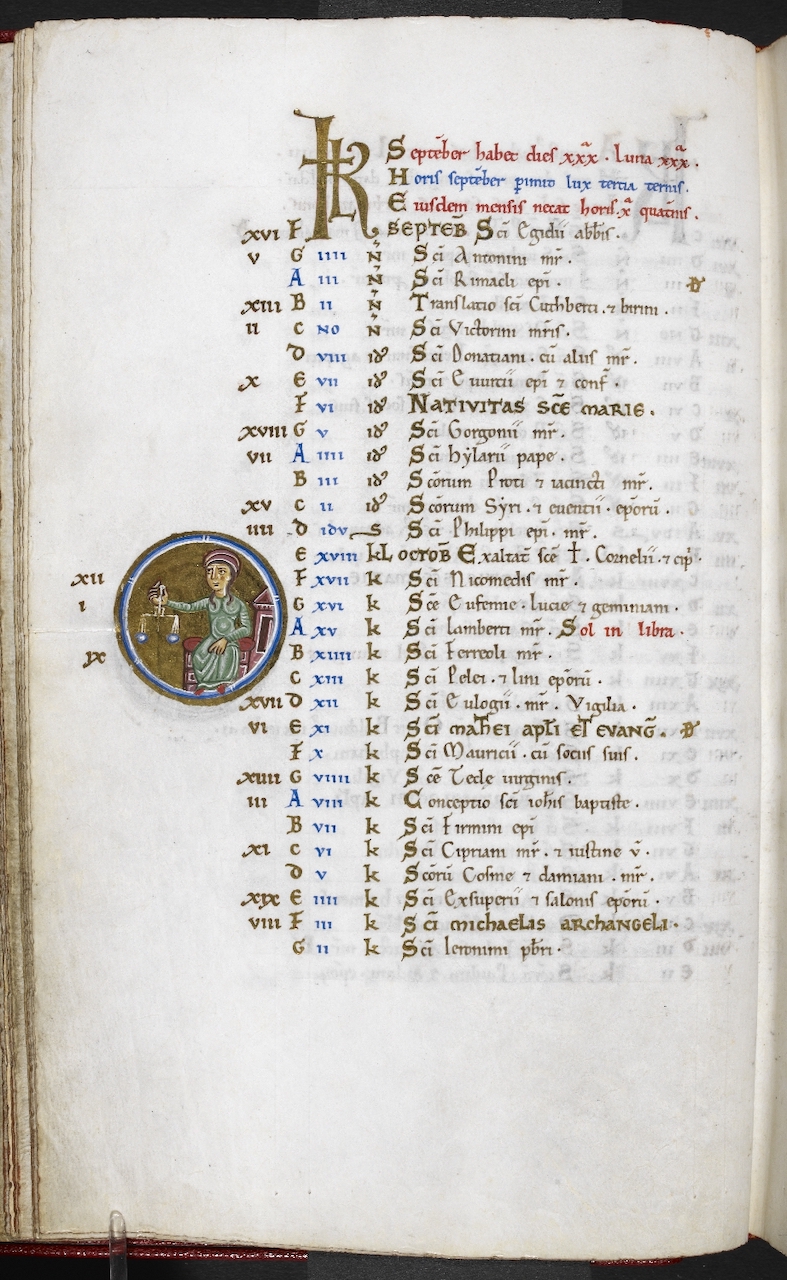 KL Septēber habet dies xxx.ᵃ Luna xxx.ᵃ
Horis septēber
lux tertia ternis.
Eiusdem mensis necat horis xᵃ quat̄nis.
xvi F SEPTEB̄ Sc̄i Egidii abb̄is.
v G iiii N̄ Sc̄i Antonini mr̄.
A iii N̄ Sc̄i Rimacli ep̄i.
xiii B ii N̄ Translatio sc̄i Cuthberti. ⁊ birini.
ii C NO N̄ Sc̄i Victorini mr̄is.
D viii id' Sc̄i Donatiani. cū aliis mr̄.
x E vii id' Sc̄i Euurtii ep̄i ⁊ conf̄.
F vi id' NATIVITAS SC̄E MARIE.
xviii G v id' Sc̄i Gorgonii mr̄.
vii A iiii id' Sc̄i hylarii pape.
B iii id' Sc̄orum Proti ⁊ iacincti mr̄.
xv C ii id' Sc̄orum Syri. ⁊ euentii. ep̄orū.
iiii D idvs Sc̄i Philippi ep̄i. mr̄.
E xviii kL OCTOB̄ Exaltat̄ sc̄e ✝. Cornelii. ⁊ cip̄.
xii F xvii k Sc̄i Nicomedis mr̄.
i G xvi k Sc̄e Eufemie. Lucie ⁊ geminiani.
A xv k Sc̄i lamberti mr̄. Sol in libra.
ix B xiiii k Sc̄i Ferreoli mr̄.
C xiii k Sc̄i Pelei. ⁊ lini ep̄orū.
xvii D xii k Sc̄i Eulogii. mr̄. Vigilia.
vi E xi k SC̄I MATHEI APL̄I ET EVANḠ.
F x k Sc̄i Mauricii. cū sociis suis.
xiiii G viiii k Sc̄e Tecle uirginis.
iii A viii k Conceptio sc̄i ioh̄is baptiste.
B vii k Sc̄i Firmini ep̄i
xi C vi k Sc̄i Cipriani mr̄. ⁊ iustine v̄.
D v k Sc̄orū Cosme ⁊ damiani. mr̄.
xix E iiii k Sc̄i Exsuperii ⁊ salonis ep̄orū.
viii F iii k SC̄I MICHAELIS ARCHANGELI.
G ii k Sc̄i Ieronimi pb̄ri.